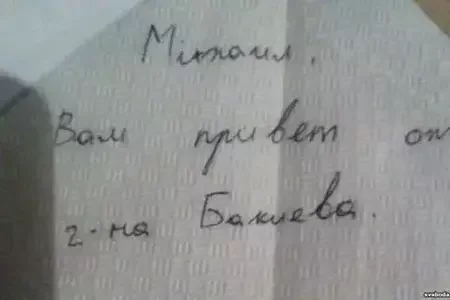 Михаил,
Вам привет от
г-на Бакиева.
svaboda